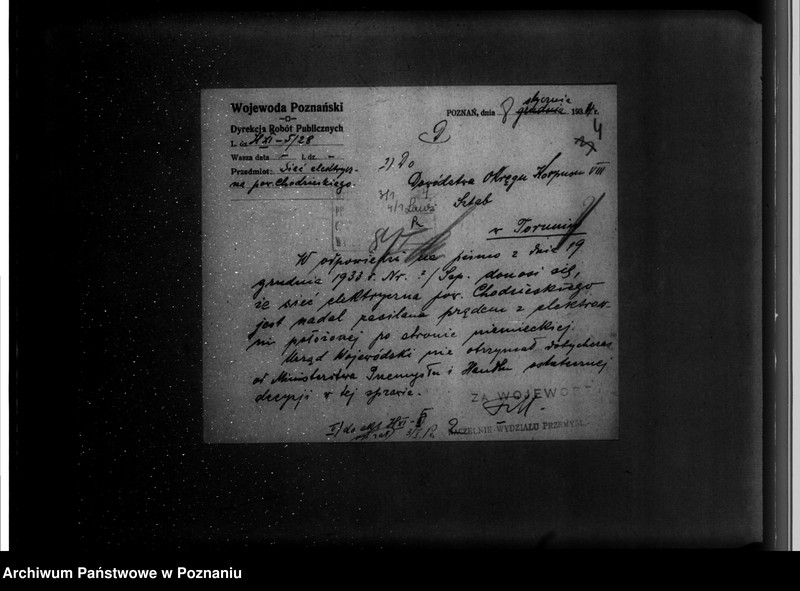 Wojewoda Poznański
Dyrekcja Robót Publicznych
L. dz. HXI-5/28
Wasza data - l. dz. -
Przedmiot: Sieć elektrycz-
na pow. Chodzieskiego.
POZNAŃ, dnia 8 stycznia grudnia 1934 r.
4
2) Do
Dowództwa Okręgu Korpusu VIII
Sztab
w Toruniu
W odpowiedzi na pismo z dnia 19
grudnia 1933 r. Nr. 2/Sap. donosi się,
że sieć elektryczna pow. Chodzieskiego
jest nadal zasilana prądem z elektrow-
ni położonej po stronie niemieckiej.
Urząd Wojewódzki nie otrzymał dotychczas
od Ministerstwa Przemysłu i Handlu ostatecznej
decyzji w tej sprawie.
ZA WOJEWODĘ
II) do akt HXI-
NACZELNIK WYDZIAŁU PRZEMYSŁ.
Archiwum Państwowe w Poznaniu